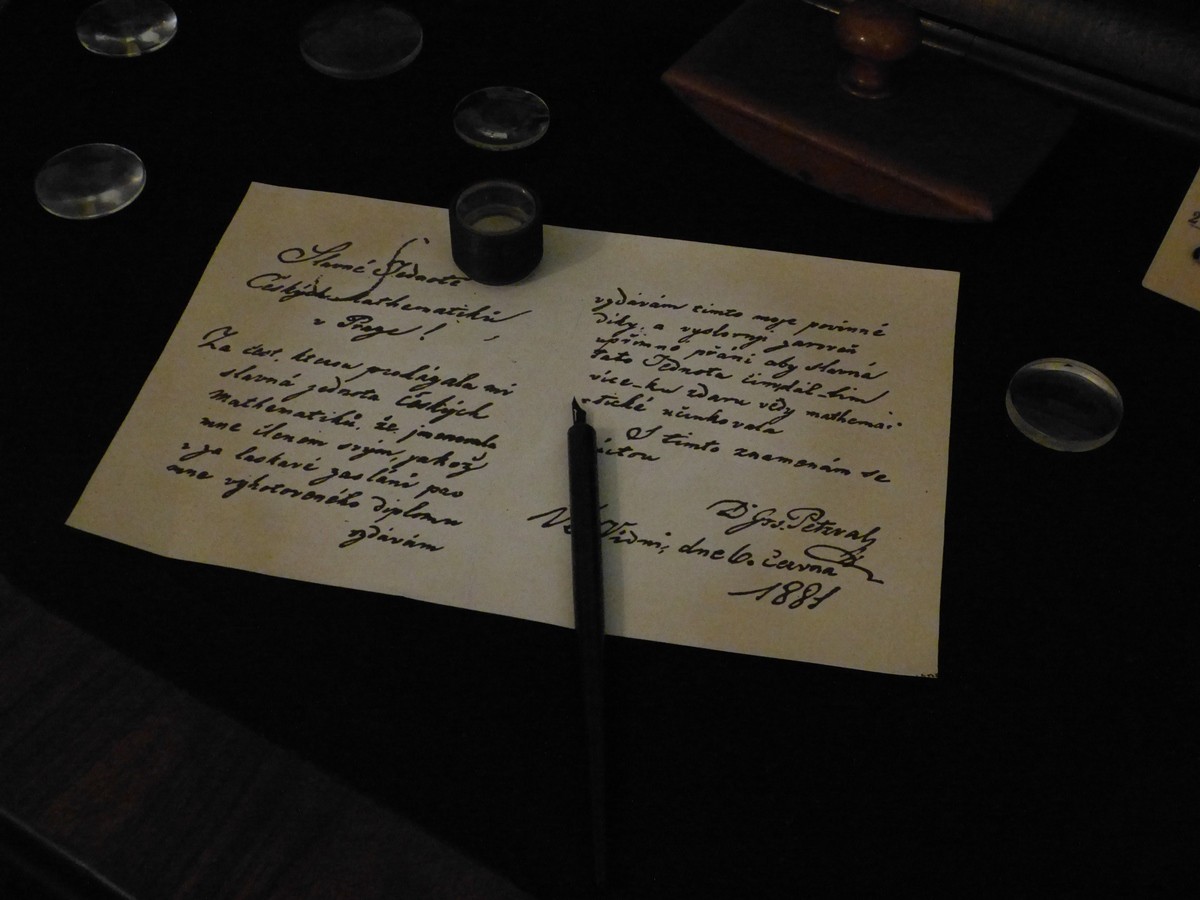 Slavné Jednotě
Českých Mathematiků
v Praze!
Za čest, kterou prokázala mi
slavná jednota Českých
mathematiků, že jmenovala
mne členem svým, jakož
i za laskavé zaslání pro
mne vyhotoveného diplomu
vzdávám
vzdávám tímto moje povinné
díky, a vyslovuji zároveň
upřímné přání aby slavná
tato Jednota čím dál-tím
více-ku zdaru vědy mathema-
tické účinkovala
S tímto znamenám se
úctou
Dr Jos. Petzval
Ve Vídni, dne 6. června
1881